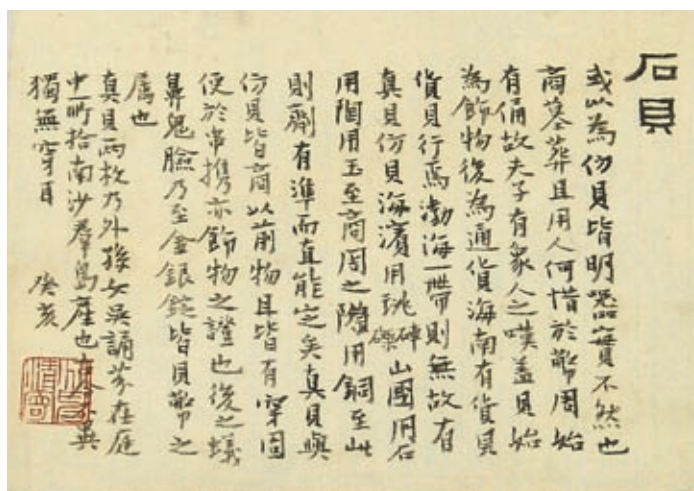 石貝
或以為仿貝皆明器實不然也
商墓葬且用人何惜於幣周始
有俑故夫子有象人之嘆蓋貝始
為飾物後為通貨海南有貨貝
貨貝行焉渤海一帶則無故有
真貝仿貝海濱用珧硨磲山國用石
用陶用玉至商周之際用銅至此
則劑有準而直能定矣真貝與
仿貝皆商以前物且皆有穿固
便於串攜亦飾物之證也後之蟻
鼻鬼臉乃至金銀錠皆貝幣之
屬也
真貝兩枚乃外孫女吳誦芬在庭
中所拾南沙群島產也
獨無穿耳 癸亥